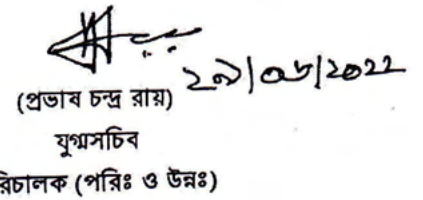 ২৯/০৬/২০২২
(প্রভাষ চন্দ্র রায়)
যুগ্মসচিব
রিচালক (পরিঃ ও উন্নঃ)